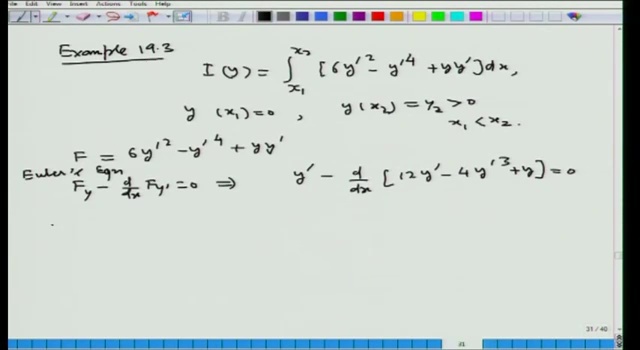 Edit View Insert Actions Tools Help
Example 19.3
I(y) = ∫_{x₁}^{x₂} [6y'² - y'⁴ + yy']dx,
y(x₁)=0, y(x₂) = y₂ > 0
x₁ < x₂.
F = 6y'² - y'⁴ + yy'
Euler's Eqn
F_y - d/dx F_y' = 0 ⇒ y' - d/dx [12y' - 4y'³ + y] = 0
31 / 40
31